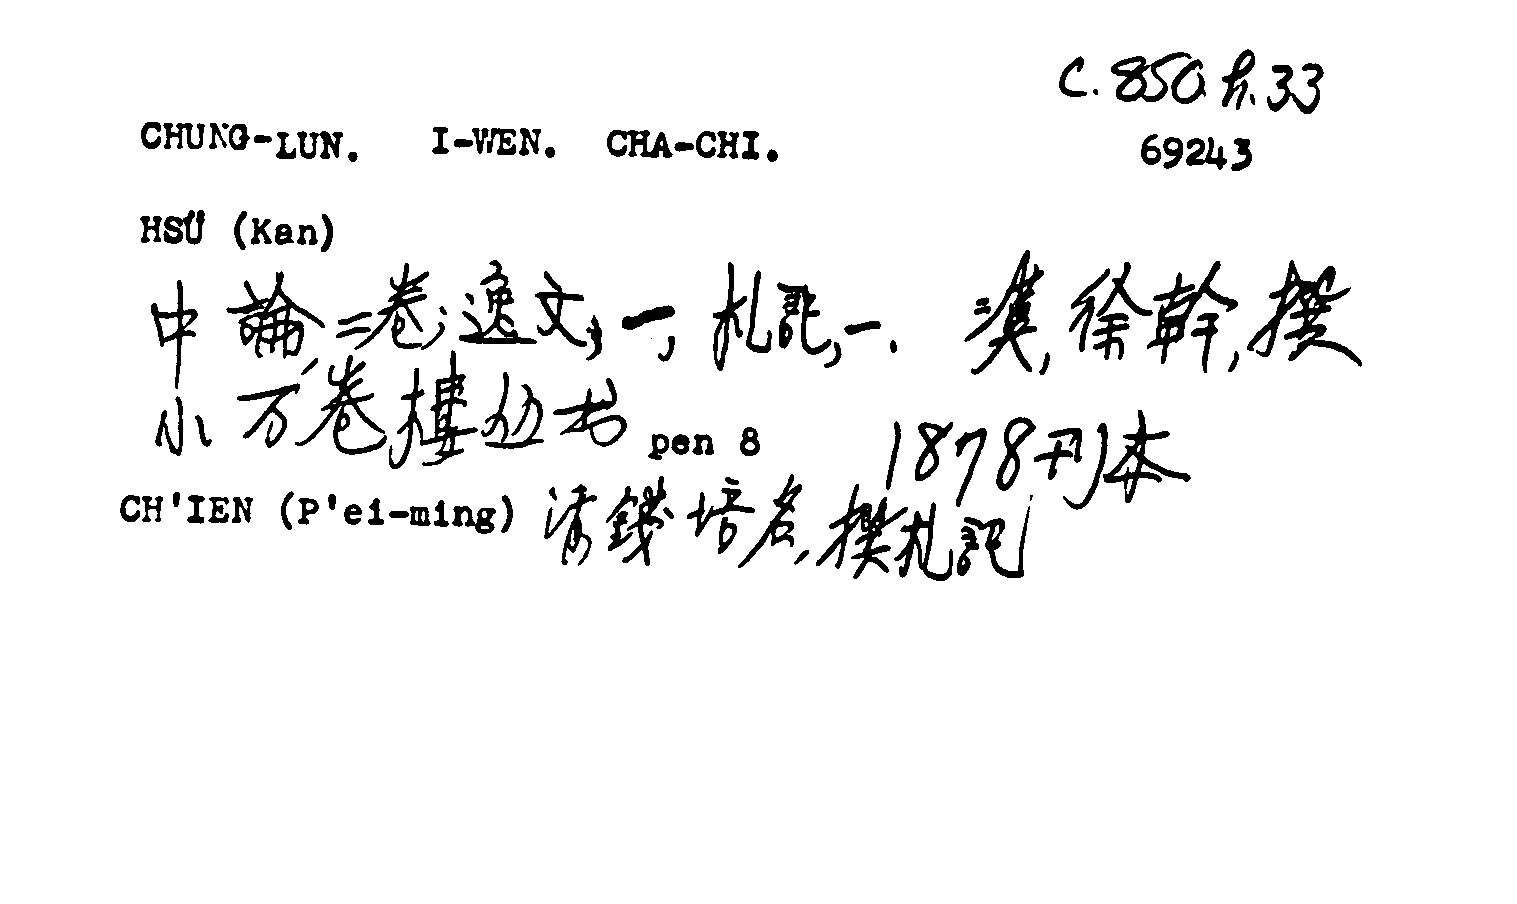 C. 850. h. 33
CHUNG-LUN. I-WEN. CHA-CHI. 69243
HSÜ (Kan)
中論,二卷;逸文,一,札記,一. 漢,徐幹,撰
小万卷樓丛书 pen 8 1878刊本
CH'IEN (P'ei-ming) 清錢培名,撰札記